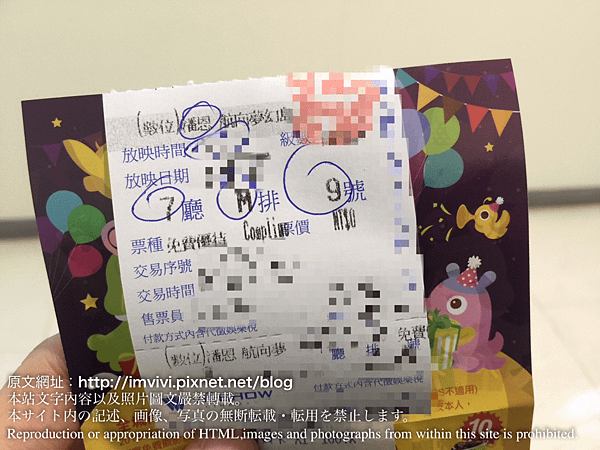 (數位)潘恩 航向夢幻島
級
放映時間
放映日期
7 廳 M 排 9 號
票種 免費優待 Complim 票價 NT$0
交易序號
交易時間
售票員
付款方式內含代徵娛樂稅
(數位)潘恩 航向夢 廳 排 號
免費
付款方式內含代徵娛樂稅
原文網址：http://imvivi.pixnet.net/blog
本站文字內容以及照片圖文嚴禁轉載。
本サイト内の記述、画像、写真の無断転載・転用を禁止します。
Reproduction or appropriation of HTML,images and photographs from within this site is prohibited.